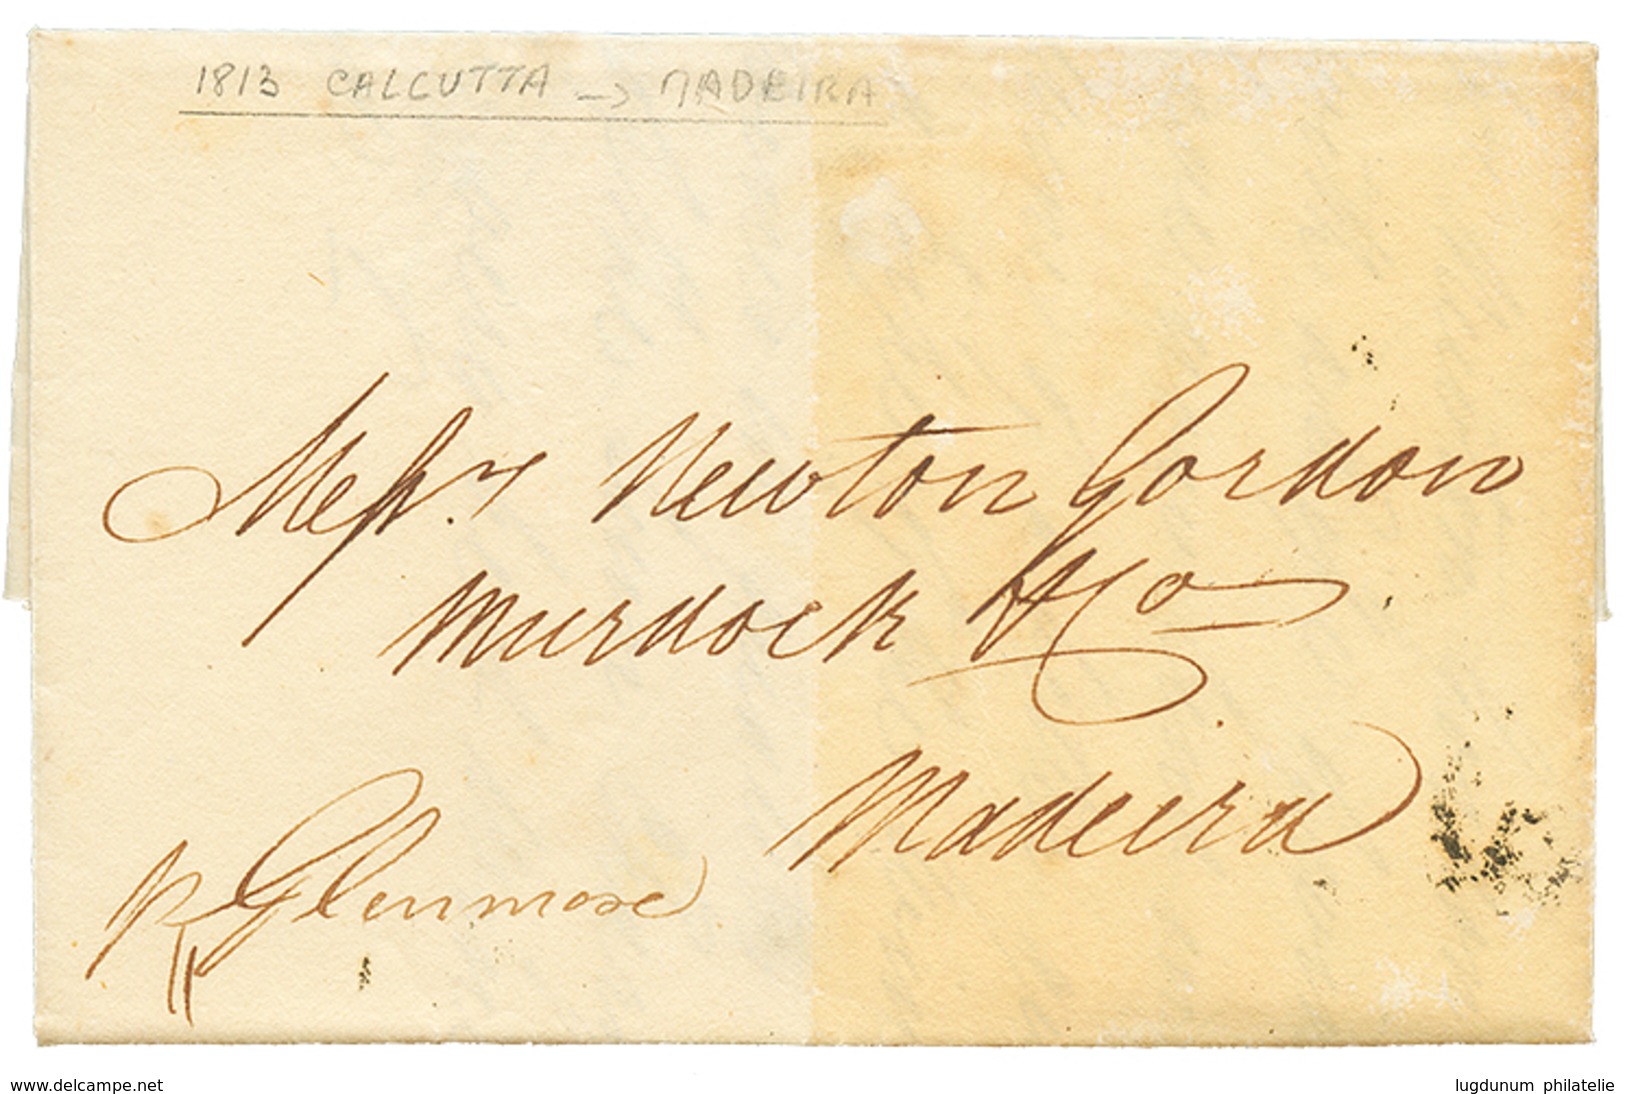 1813 CALCUTTA → MADEIRA
Messrs Newton Gordon
Murdock & Co.
Madeira
Pr Glenmore
www.delcampe.net
lugdunum philatelie